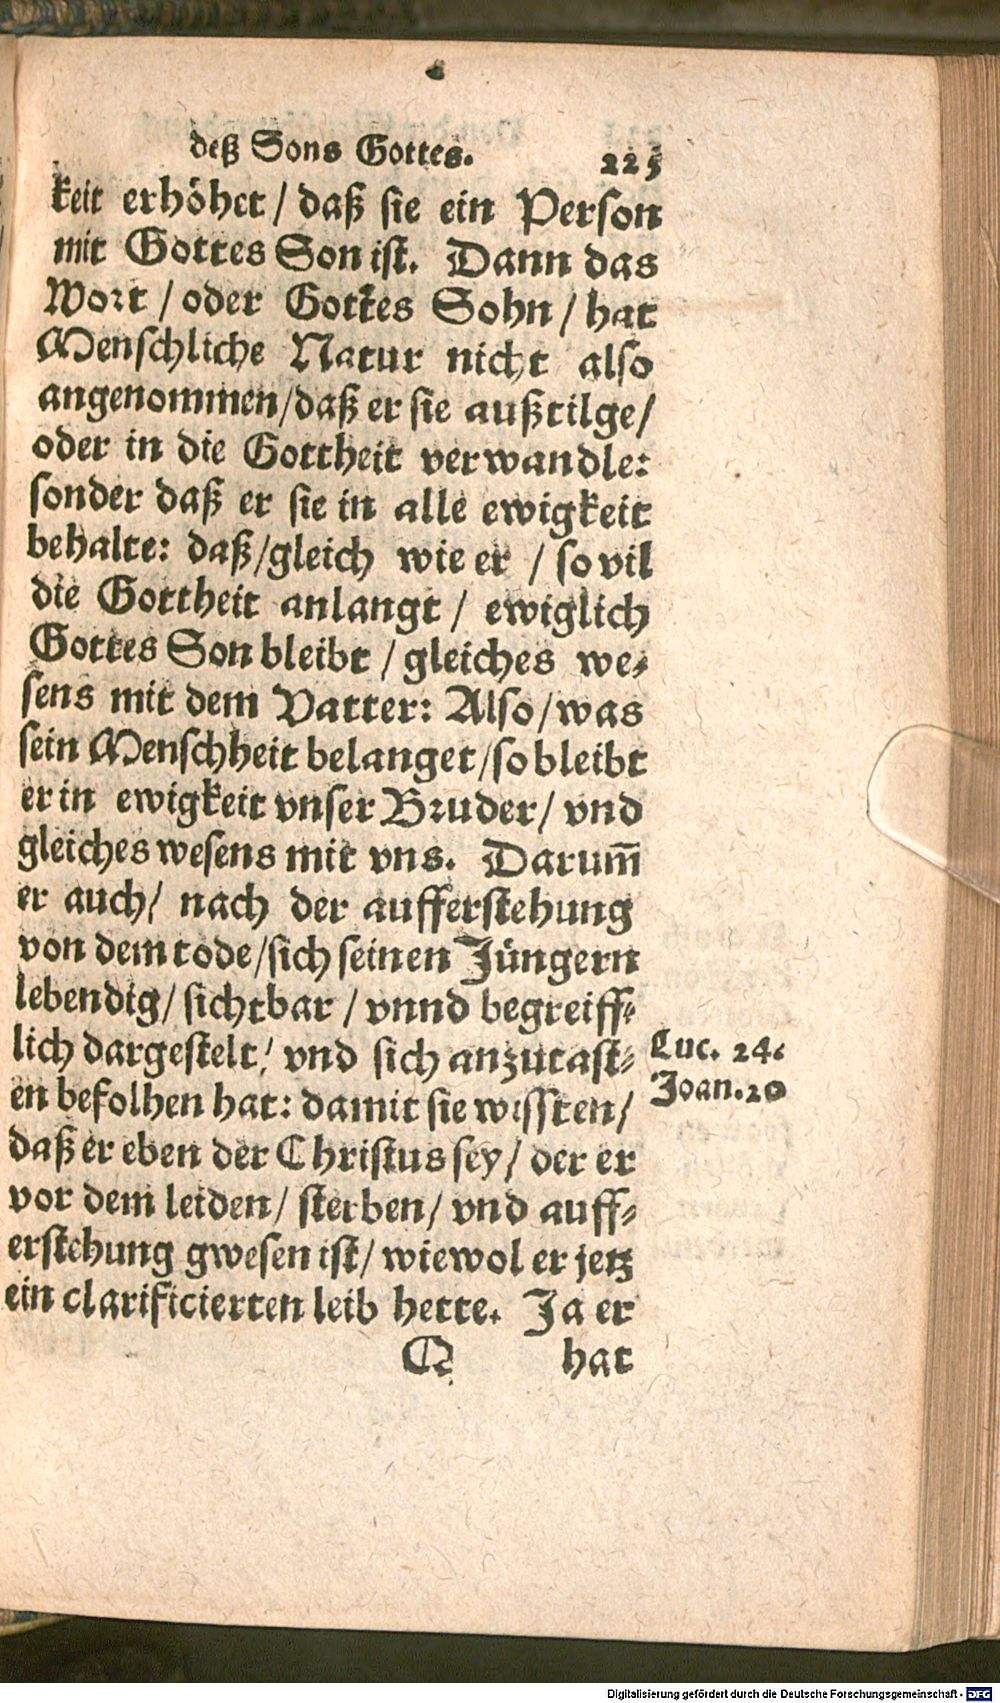 deß Sons Gottes. 225
keit erhöhet / daß sie ein Person
mit Gottes Son ist. Dann das
Wort / oder Gottes Sohn / hat
Menschliche Natur nicht also
angenommen / daß er sie außtilge /
oder in die Gottheit verwandle:
sonder daß er sie in alle ewigkeit
behalte: daß / gleich wie er / so vil
die Gottheit anlangt / ewiglich
Gottes Son bleibt / gleiches we-
sens mit dem Vatter: Also / was
sein Menschheit belanget / so bleibt
er in ewigkeit vnser Bruder / vnd
gleiches wesens mit vns. Darum̃
er auch / nach der aufferstehung
von dem tode / sich seinen Jüngern
lebendig / sichtbar / vnnd begreiff-
lich dargestelt / vnd sich anzutast-
en befolhen hat: damit sie wissten /
daß er eben der Christus sey / der er
vor dem leiden / sterben / vnd auff-
erstehung gwesen ist / wiewol er jetz
ein clarificierten leib hette. Ja er
Q hat
Luc. 24.
Joan. 20
Digitalisierung gefördert durch die Deutsche Forschungsgemeinschaft - DFG